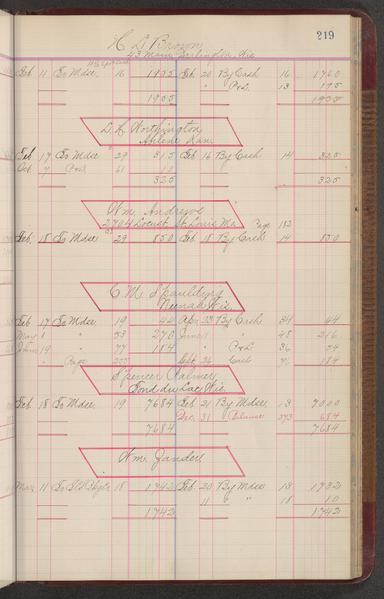 219
H L Brown
43 Main, Burlington, Wis
Feb 11 To Mdse 16 1955 Feb 20 By Cash 16 1760
" 13 195
1955 1955
D. H. Worthington
Abilene Kan.
Feb 17 To Mdse 29 315 Feb 16 By Cash 14 325
Oct 7 61 10
325 325
Wm. Andrews
2704 Locust St Louis Mo. Page 182
Feb. 18 To Mdse 29 850 Feb 18 By Cash 14 850
C. M. Spaulding
Neenah Wis.
Feb 17 To Mdse 19 44 Apr 23 By Cash 34 44
May 8 " 53 270 June 1 " 48 216
June 19 " 77 184 " 36 54
" Page 255 Sept 26 Cash 184
Spencer Palmer
Fond du Lac Wis.
Feb 18 To Mdse 19 7684 Feb 21 By Mdse 13 7000
Dec 31 Balance 373 684
7684 7684
Wm. Zandell
Mar 11 To 18 1742 Feb 20 By Mdse 13 1732
11 " " 18 10
1742 1742